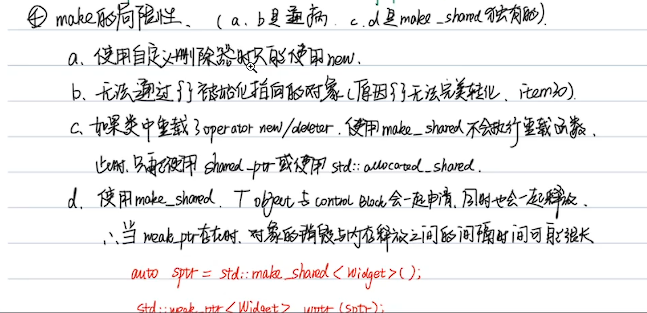 ④ make的局限性. (a. b是通病 c. d是make_shared独有的).
a. 使用自定义删除器时只能使用new.
b. 无法通过{}初始化指向的对象(原因{}无法完美转化. item30).
c. 如果类中重载了operator new/deleter. 使用make_shared不会执行重载函数.
此时.只能使用 shared_ptr 或使用 std::allocated_shared.
d. 使用make_shared. T object 与 control Block 会一起申请.同时也会一起释放.
∴ 当 weak_ptr存在时. 对象的销毁与内存释放之间的间隔时间可能很长
auto sptr = std::make_shared<Widget>();
std::weak_ptr<Widget> wptr(sptr);